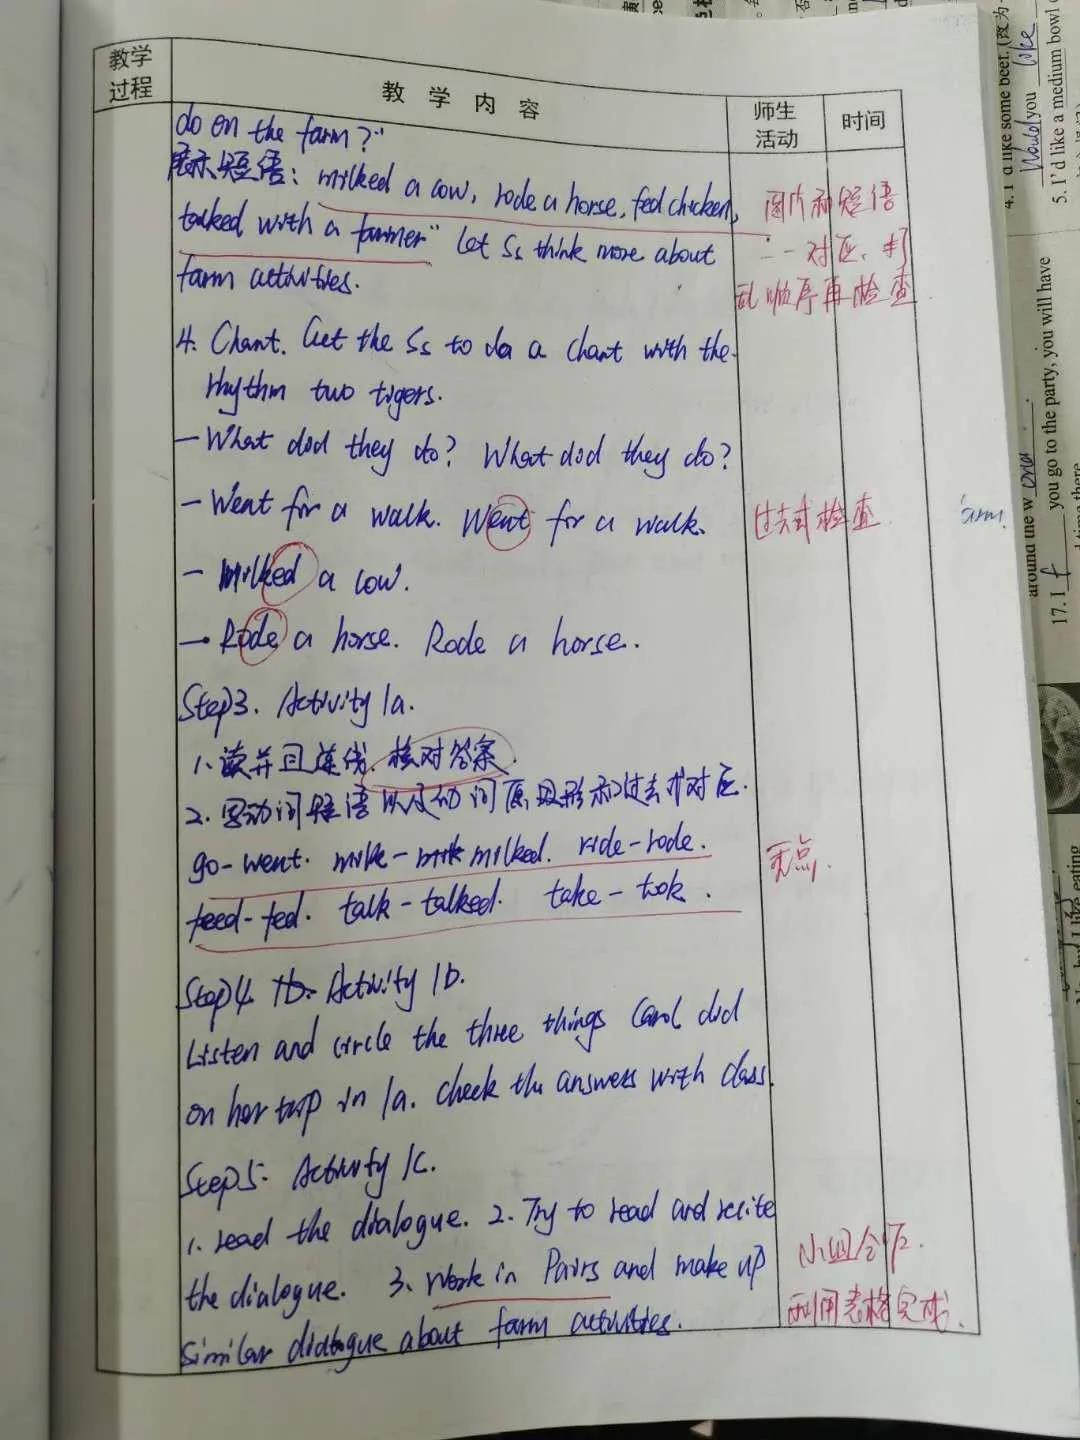 教学
过程
教 学 内 容
师生
活动
时间
do on the farm?"
展示短语: milked a cow, rode a horse, fed chicken,
talked with a farmer" Let Ss think more about
farm activities.
图片和短语
一一对应、打
乱顺序再检查
4. Chant. Get the Ss to do a chant with the
rhythm two tigers.
- What did they do? What did they do?
- Went for a walk. Went for a walk.
过去式检查
- Milked a cow.
- Rode a horse. Rode a horse.
Step3. Activity 1a.
1、读并且连线、核对答案
2、写动词短语以及动词原型形和过去式对应.
go-went. milk- milked. ride-rode.
feed-fed. talk-talked. take-took.
重点.
Step4. 1b. Activity 1b.
Listen and circle the three things Carol did
on her trip in 1a. Check the answers with class.
Step5. Activity 1c.
1. read the dialogue. 2. Try to read and recite
the dialogue. 3. Work in Pairs and make up
similar dialogue about farm activities.
小组合作.
利用表格完成.
4. I'd like some beef. (改为
Would you like
5. I'd like a medium bowl
you go to the party, you will have
around the w
17. I f
I like eating